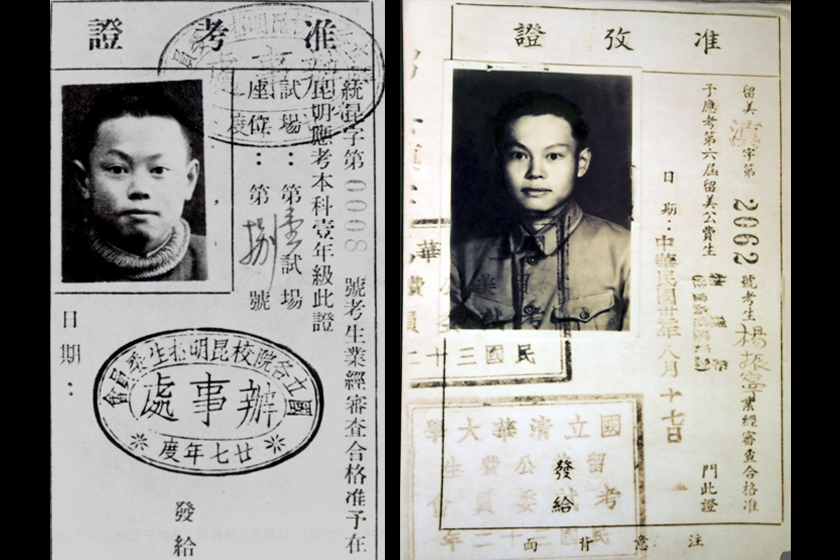 准考證
統昆字第0008號考生業經審查合格准予在
昆明應考本科壹年級此證
試場：第壹試場
座位：第捌號
日期：
國立各院校昆明招生委員會
辦事處
廿七年度
發給
准攷證
留美滇字第2062號考生楊振寧業經審查合格准
予應考第六屆留美公費生
門此證
日期：中華民國卅二年八月十七日
國立清華大學
留美公費生
考試委員會
民國三十二年
發給
注意背面